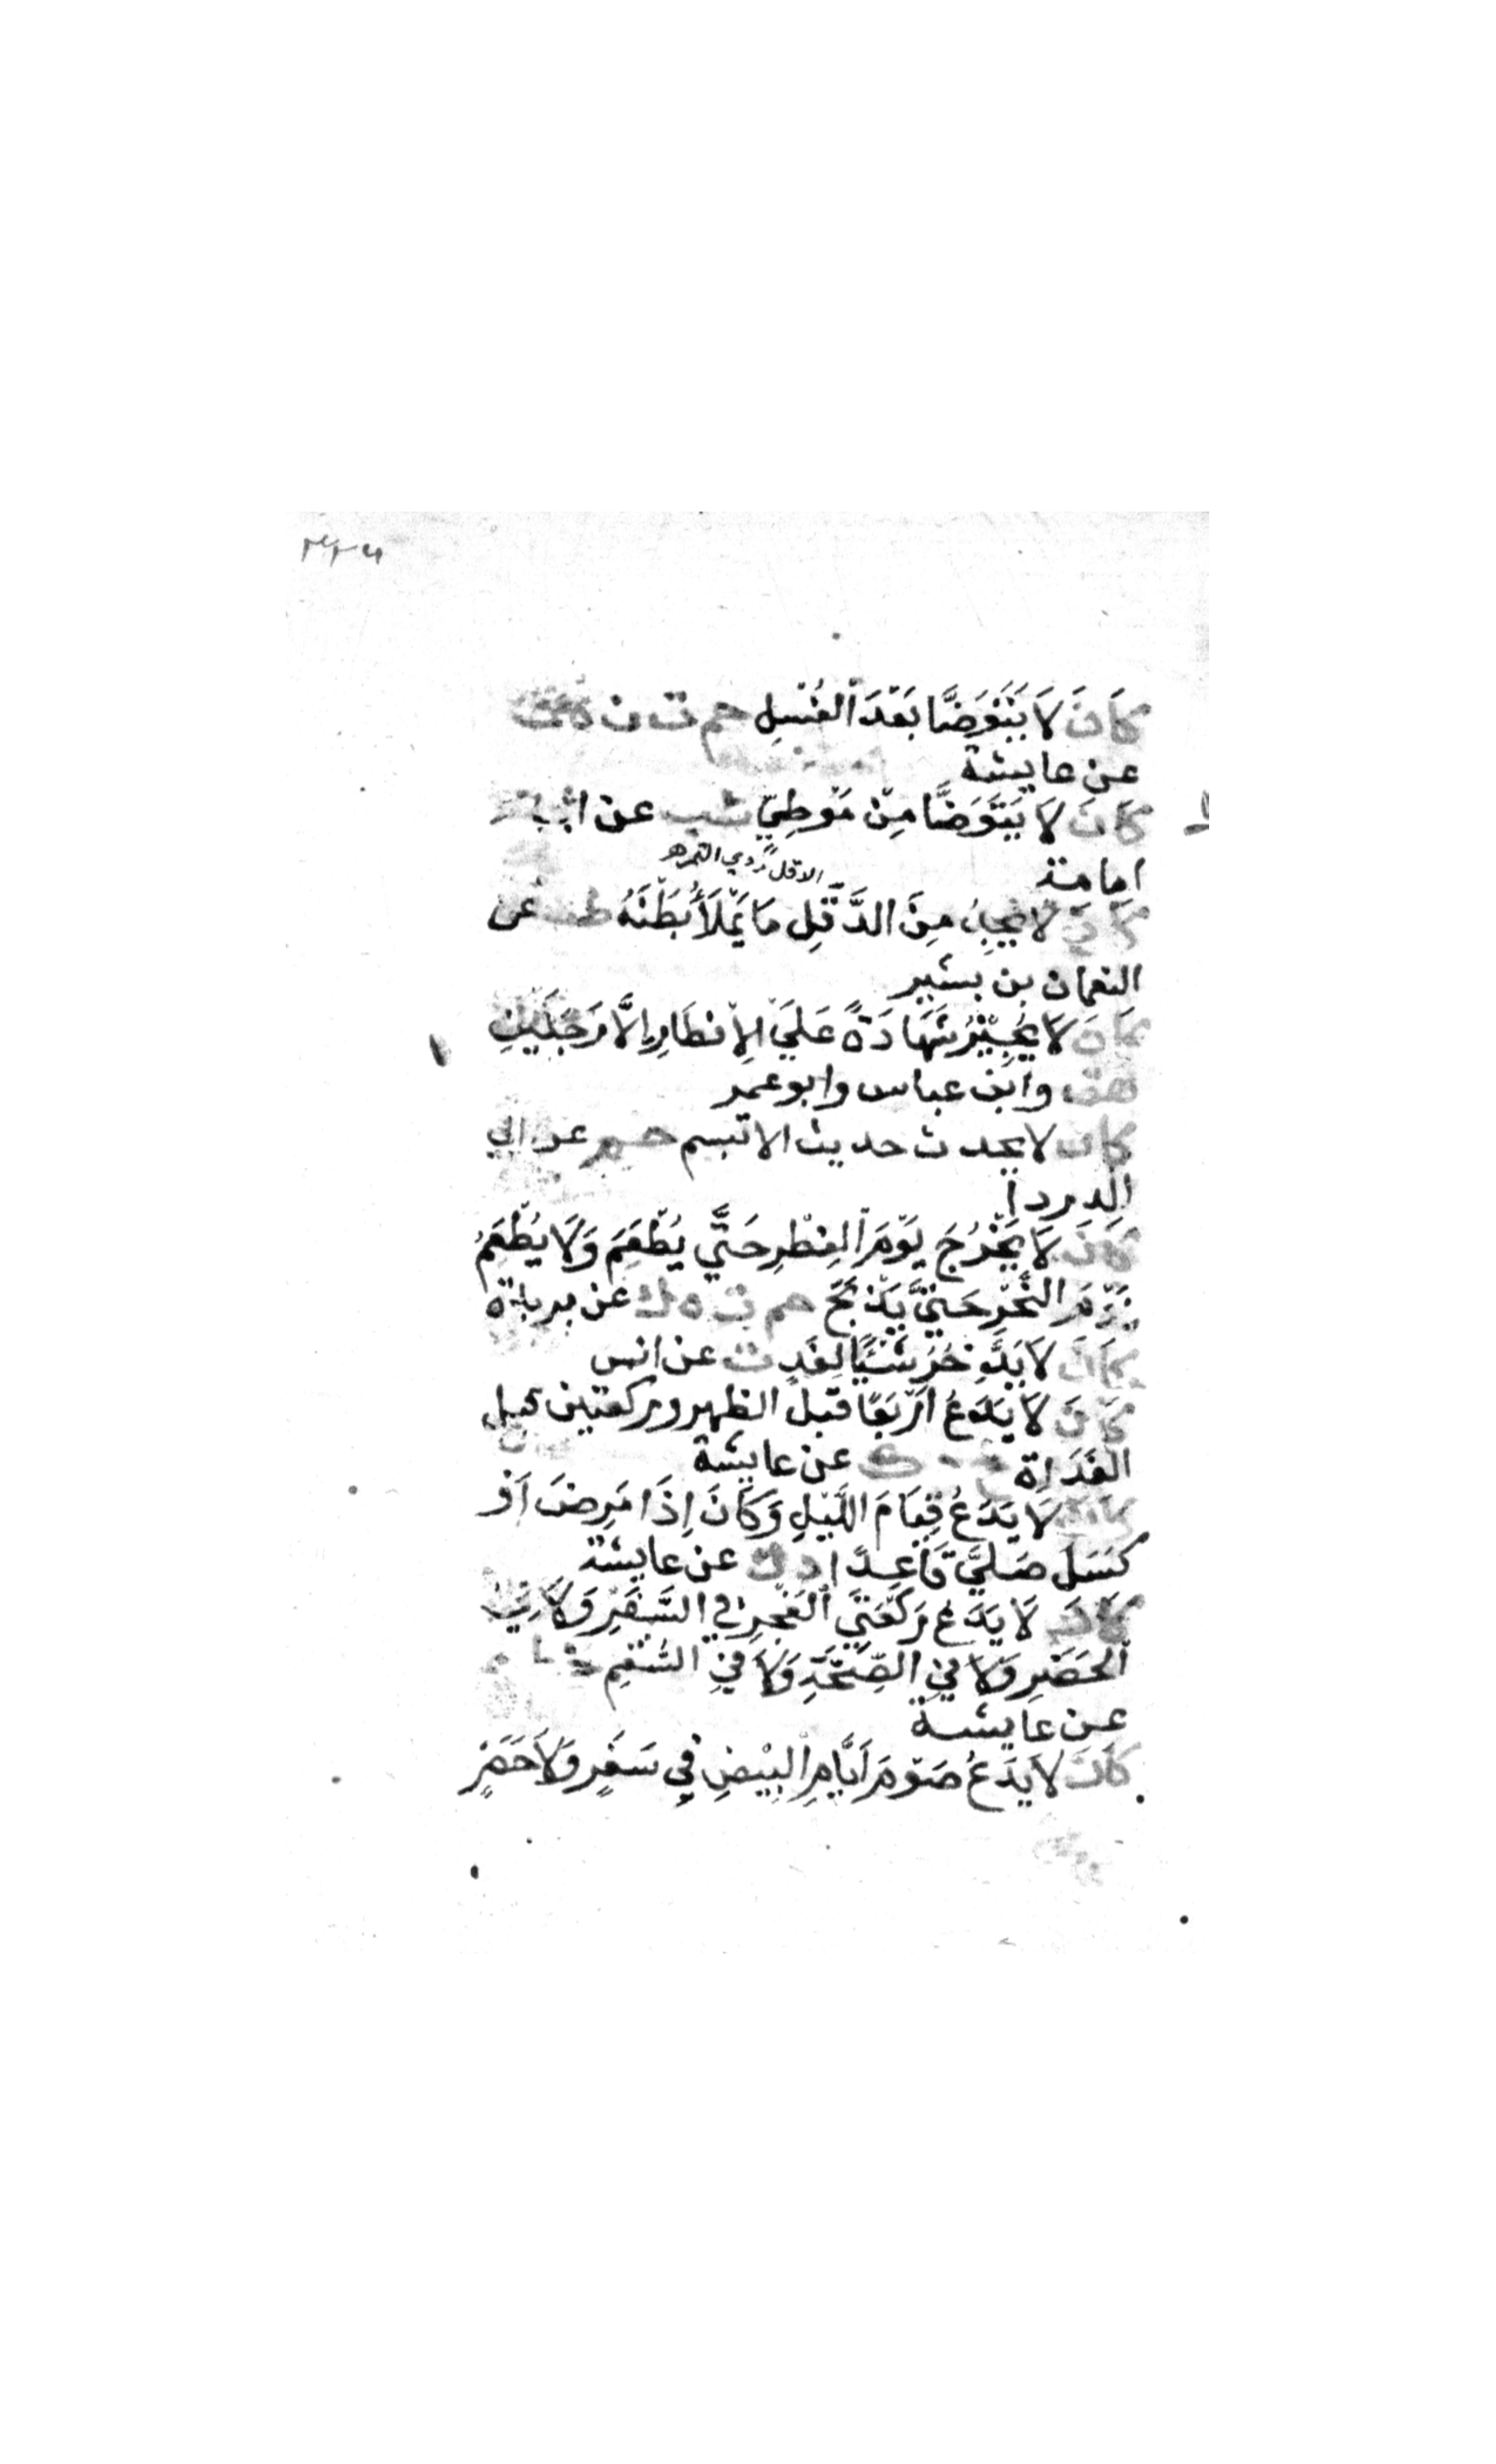 كَانَ لَا يَتَوَضَّأ بَعْدَ الْغُسْلِ حم ت ن ه ك
عن عايشة
كَانَ لَا يَتَوَضَّأ مِنْ مَوْطِيٍ عن
امامة
ردي التمر
لا يجد مِنَ الدَّقَلِ مَا يَمْلَأُ بَطْنَهُ عن
النعمان بن بشير
كَانَ لَا يُجِيْزُ شَهَادَةً عَلَى الْاِفطَارِ اِلَّا رَجُلَيْنِ
هق وابن عباس وابو عمر
كان لا يحدث حديث الا تبسم حم عن ابي
الدردا
كَانَ لَا يَخْرُجُ يَوْمَ الْفِطْرِ حَتَّي يُطْعَمَ وَلَا يُطْعَمُ
يَوْمَ النَّحْرِ حَتَّيَ يَذْبَحَ حم ت ه ك عن بريدة
كَانَ لَا يَدَّخِرُ شَيْئًا لِغَدٍ ت عن انس
كَانَ لَا يَدَعُ اَرْبَعًا قبل الظهر وركعتين قبل
الغَدَاة عن عايشة
كَانَ لَا يَدَعُ قِيَامَ اللَّيْلِ وَكَانَ اِذَا مَرِضَ اَوْ
كَسَلَ صَلَّي قَاعِدًا د ك عن عايشة
كَانَ لَا يَدَعُ رَكْعَتَي الْفَجْرِ في السَّفَرِ وَلَا فِي
الْحَضَرِ وَلَا فِي الصِّحَّةِ وَلَا فِي السُّقْمِ خط
عن عايشة
كَانَ لَا يَدَعُ صَوْمَ اَيَّامِ الْبِيْضِ فِي سَفَرٍ وَلَا حَضَرٍ